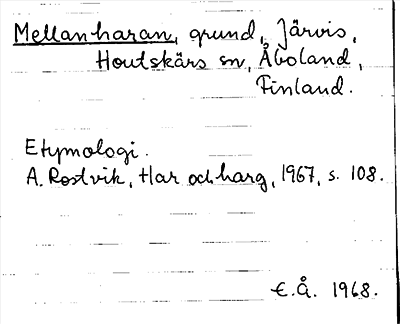 Mellanharan, grund, Järvis,
Houtskärs sn, Åboland,
Finland.
Etymologi.
A. Rostvik, Har och harg, 1967, s. 108.
E.Å. 1968.